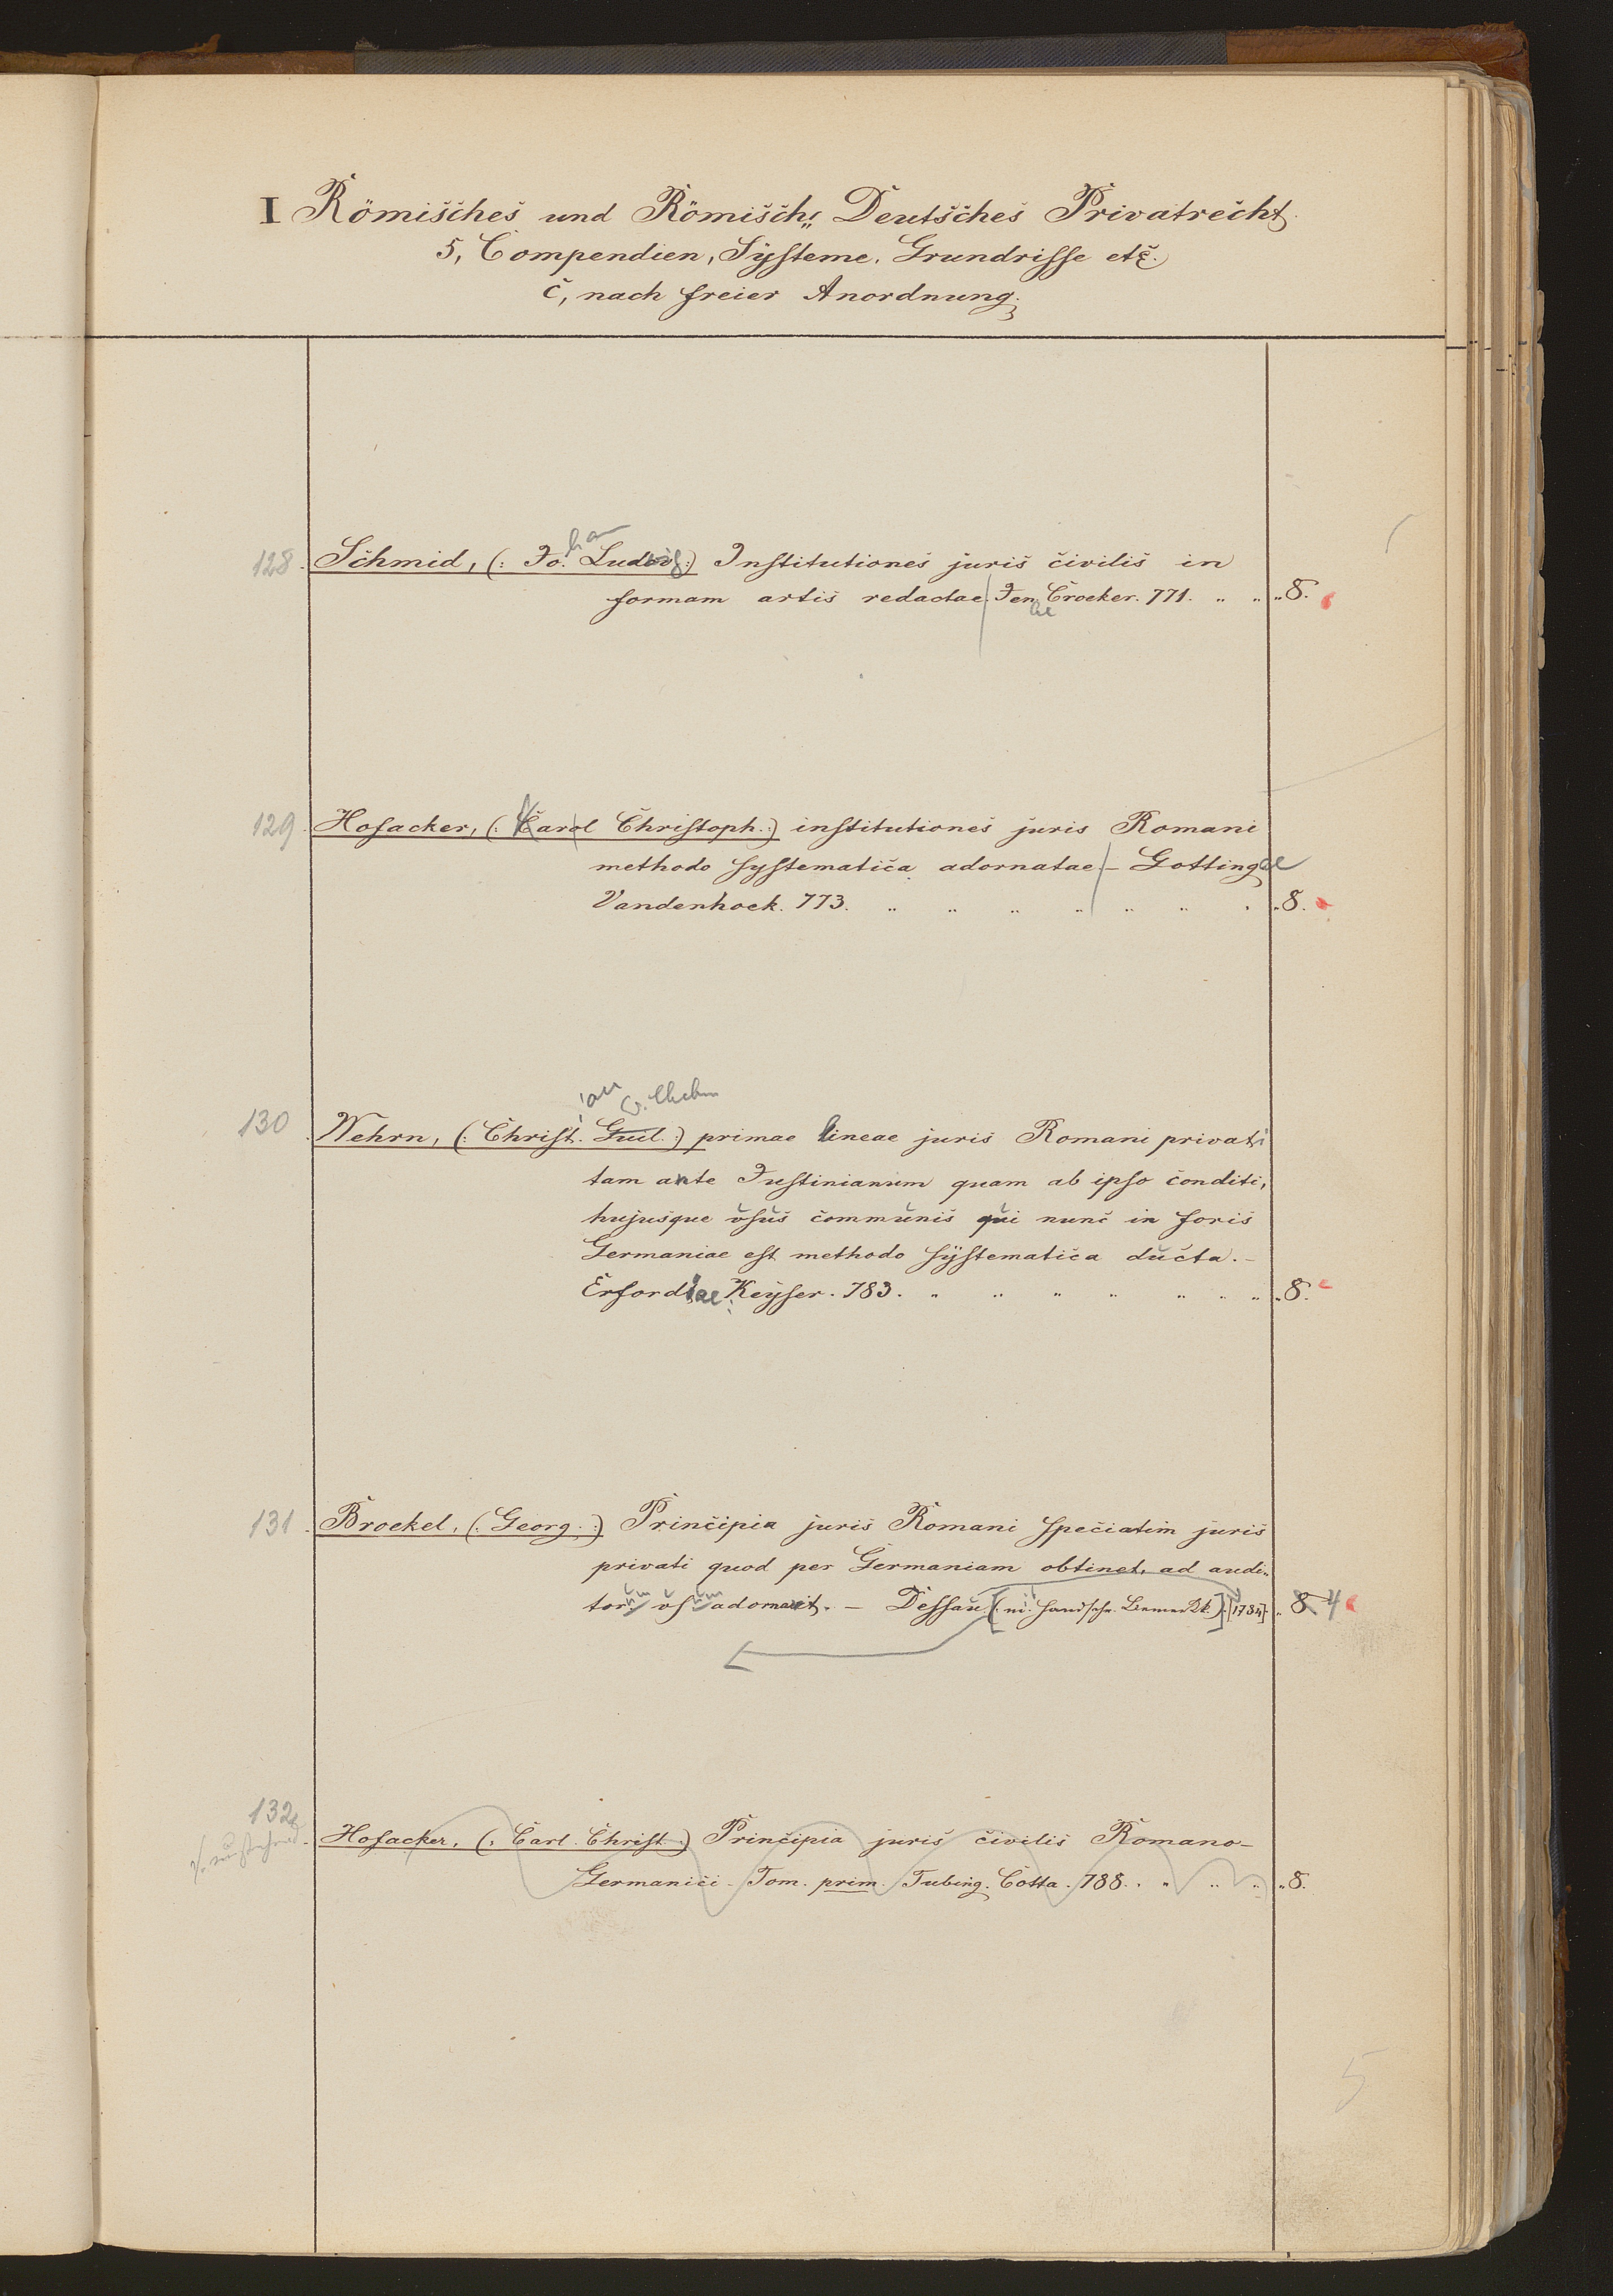 I Römisches und Römisch„ Deutsches Privatrecht.
5, Compendien, Systeme, Grundrisse etc.
c, nach freier Anordnung.
128. Schmid, (: Jo.han Ludwig:) Institutiones juris civilis in
formam artis redactae. Jenae Croeker. 771. „ „ „ 8.
129. Hofacker, (: Karol Christoph.:) institutiones juris Romani
methodo systematica adornatae – Gottingae
Vandenhoek. 773. „ „ „ „ „ „ „ 8.
ian Wilhelm
130 Wehrn, (: Christ. Guil.:) primae lineae juris Romani privati
tam ante Justinianum quam ab ipso conditi,
hujusque usus communis qui nunc in foris
Germaniae est methodo systematica ducta. –
Erfordiae Keyser. 783. „ „ „ „ „ „ „ 8.
131. Broekel, (: Georg.:) Principia juris Romani speciatim juris
privati quod per Germaniam obtinet, ad audi„
torum usum adornavit. – Dessau (m. handschr. Bemerk.) [1784] „ 8 4
132
Hofacker, (: Carl. Christ.:) Principia juris civilis Romano-
Germanici. Tom. prim. Tubing. Cotta. 788. „ „ „ 8.
5